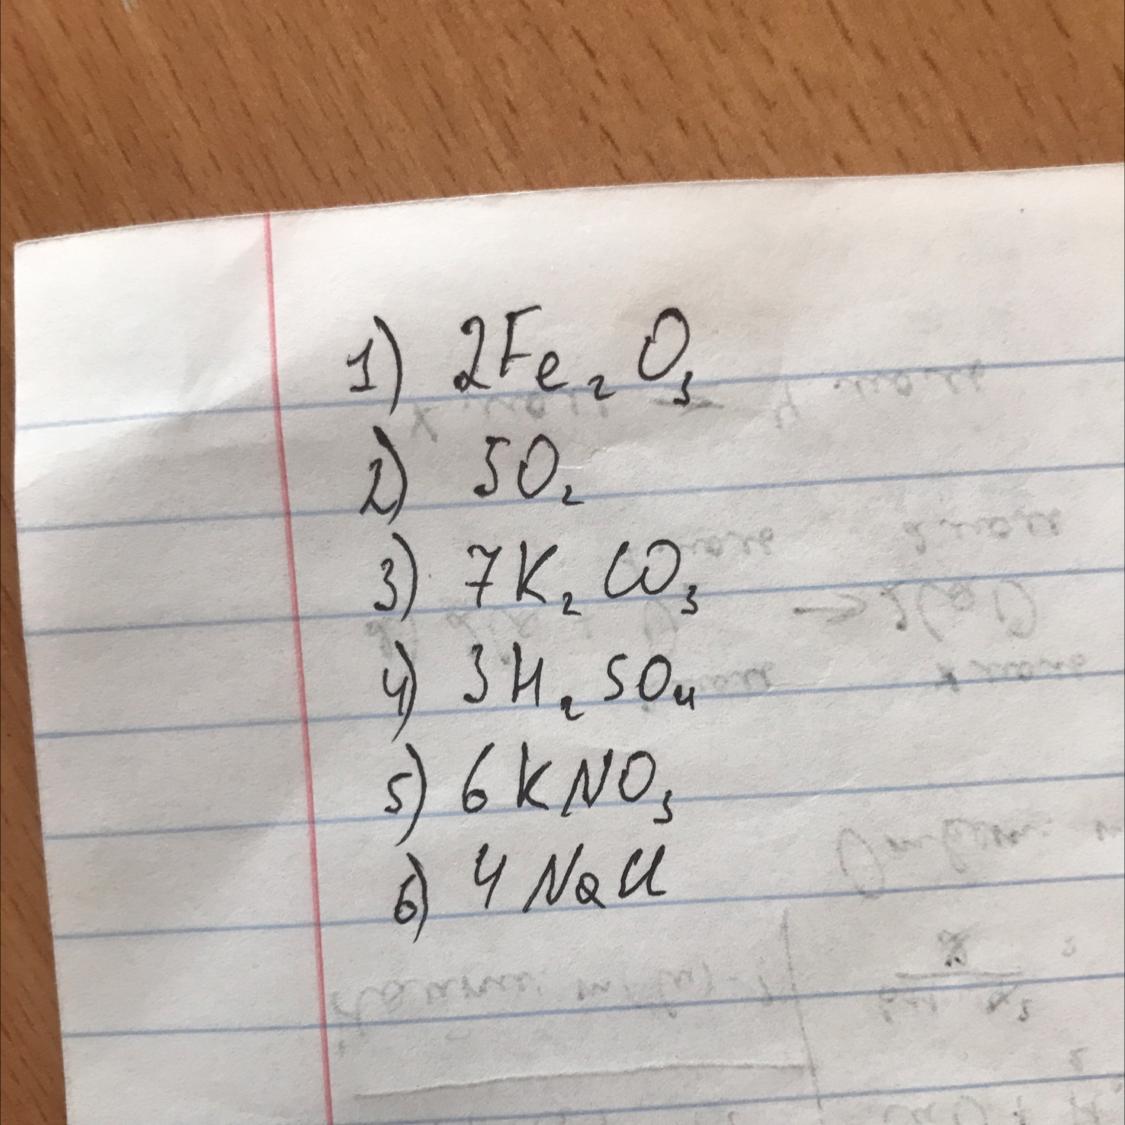 1) 2Fe₂O₃
2) 5O₂
3) 7K₂CO₃
4) 3H₂SO₄
5) 6KNO₃
6) 4NaCl